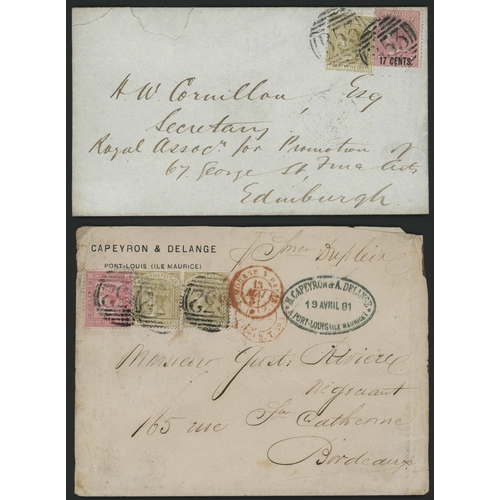 B53
B53
17 CENTS
H. W. Cornillon, Esq
Secretary
Royal Assocn. for Promotion of
Fine Arts
67. George St.
Edinburgh.
CAPEYRON & DELANGE
PORT-LOUIS (ILE MAURICE)
Dupleix
13
H. CAPEYRON & A. DELANGE
19 AVRIL 81
A PORT-LOUIS (ILE MAURICE)
Monsieur Gust. Rivière
Négociant
165 rue Ste Catherine
Bordeaux